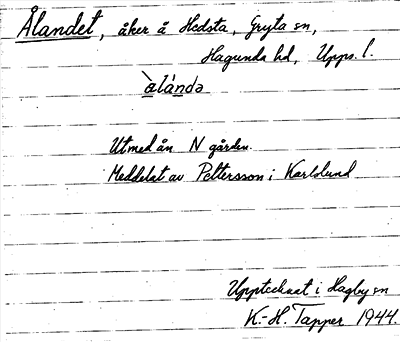 Ålandet, åker å Hedsta, Gryta sn,
Hagunda hd, Upps. l.
àlándə
Utmed ån N gården.
Meddelat av Pettersson i Karlslund
Upptecknat i Hagby sn
K.-H. Tapper 1944.